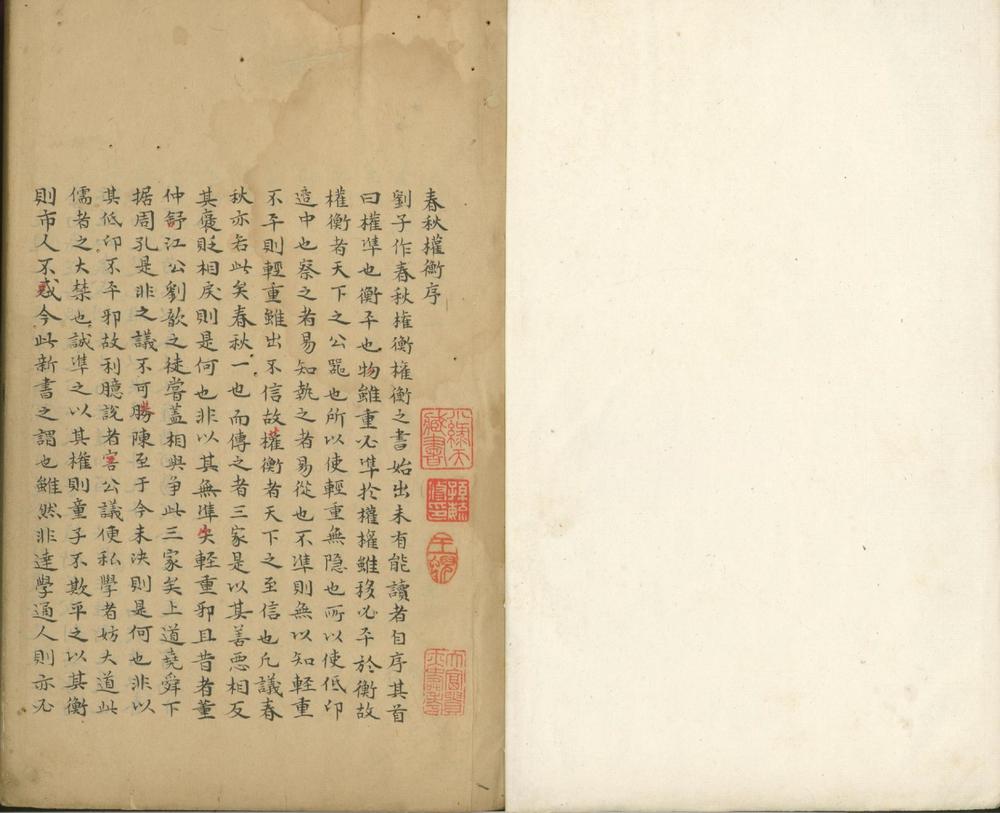 春秋權衡序
劉子作春秋權衡權衡之書始出未有能讀者自序其首
曰權準也衡平也物雖重必準於權權雖移必平於衡故
權衡者天下之公器也所以使輕重無隱也所以使低卬
適中也察之者易知執之者易從也不準則無以知輕重
不平則輕重雖出不信故權衡者天下之至信也凡議春
秋亦若此矣春秋一也而傳之者三家是以其善惡相反
其襃貶相戾則是何也非以其無準失輕重邪且昔者董
仲舒江公劉歆之徒嘗蓋相與爭此三家矣上道堯舜下
据周孔是非之議不可勝陳至于今未決則是何也非以
其低卬不平邪故利臆說者害公議便私學者妨大道此
儒者之大禁也誠準之以其權則童子不欺平之以其衡
則市人不惑今此新書之謂也雖然非達學通人則亦必